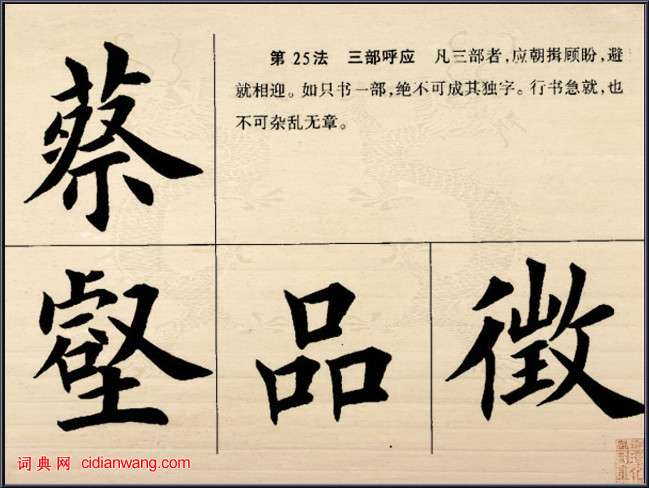 第25法 三部呼应 凡三部者,应朝揖顾盼,避
就相迎。如只书一部,绝不可成其独字。行书急就,也
不可杂乱无章。
蔡
壑 品 徵
词典网 cidianwang.com